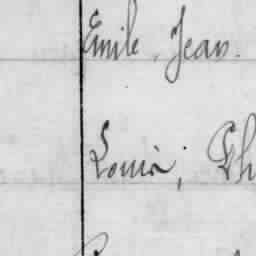 Emile, Jean.
Louis, Ph